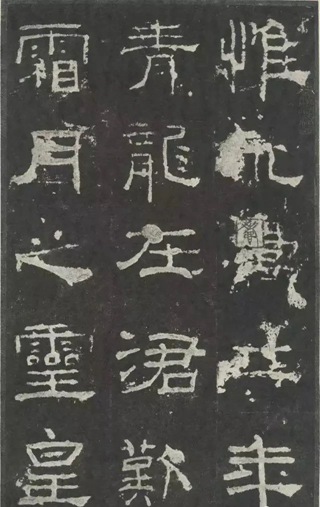 惟年
青龍在涒歎
霜月之靈皇